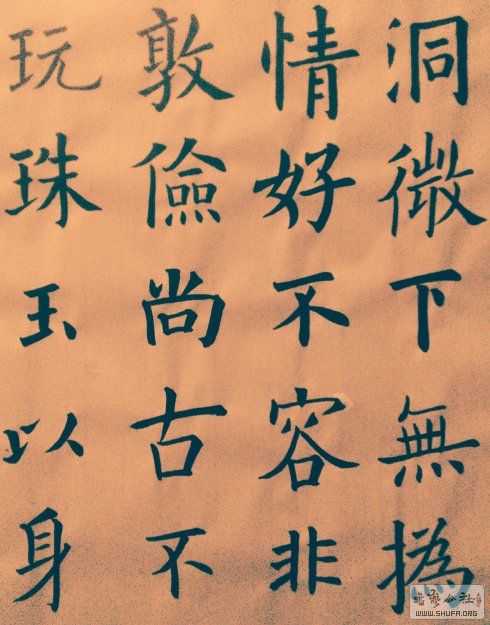 洞微下無撝
情好不容非
敦儉尚古不
玩珠玉以身
书艺公社
WWW.SHUFA.ORG